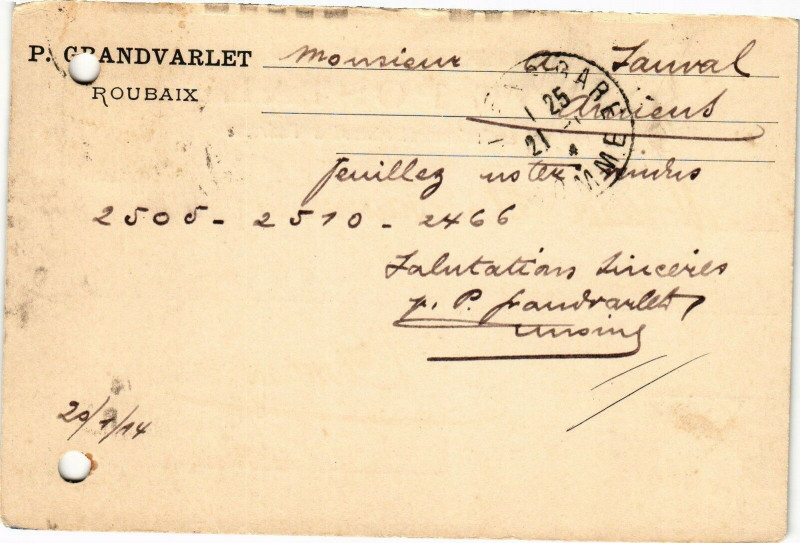 P. GRANDVARLET
ROUBAIX
Monsieur Lauval
Amiens
GARE
1 25
21
*
SOMME
feuillez noter vendus
2505 - 2510 - 2466
Salutations sincères
p. P. Grandvarlet
20/1/14